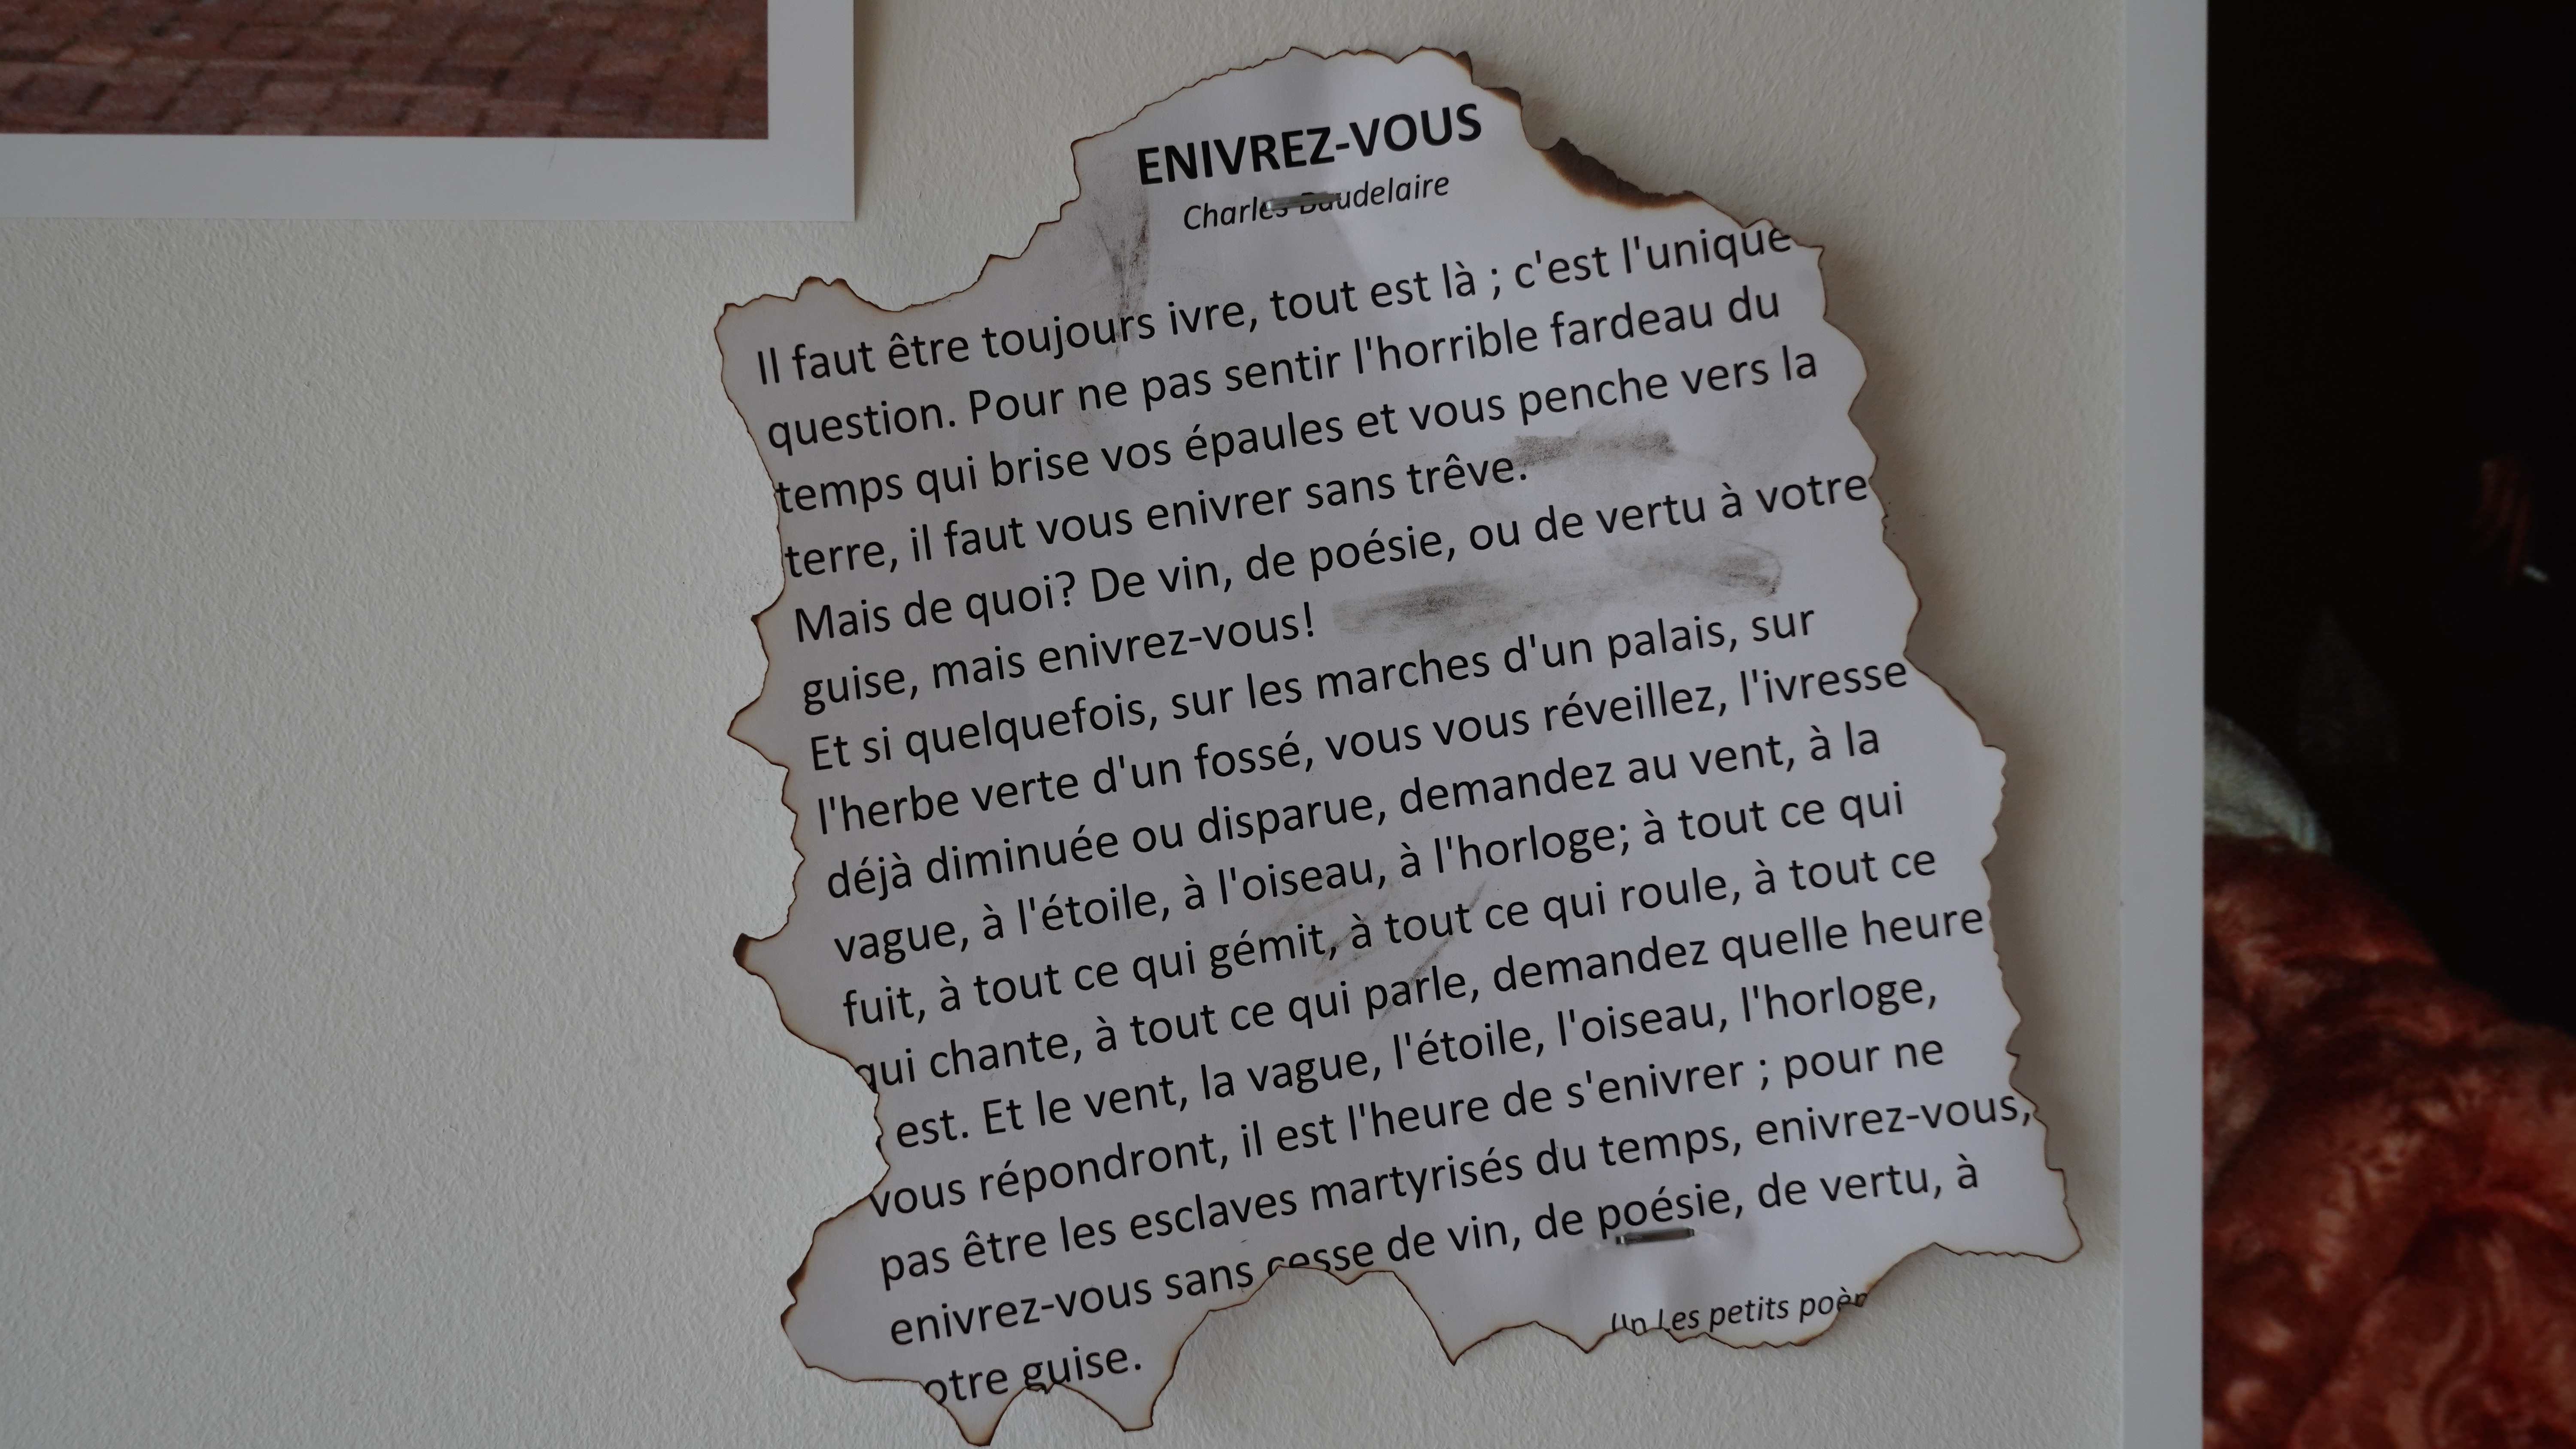 ENIVREZ-VOUS
Charles Baudelaire
Il faut être toujours ivre, tout est là ; c'est l'unique
question. Pour ne pas sentir l'horrible fardeau du
temps qui brise vos épaules et vous penche vers la
terre, il faut vous enivrer sans trêve.
Mais de quoi? De vin, de poésie, ou de vertu à votre
guise, mais enivrez-vous!
Et si quelquefois, sur les marches d'un palais, sur
l'herbe verte d'un fossé, vous vous réveillez, l'ivresse
déjà diminuée ou disparue, demandez au vent, à la
vague, à l'étoile, à l'oiseau, à l'horloge; à tout ce qui
fuit, à tout ce qui gémit, à tout ce qui roule, à tout ce
qui chante, à tout ce qui parle, demandez quelle heure
est. Et le vent, la vague, l'étoile, l'oiseau, l'horloge,
vous répondront, il est l'heure de s'enivrer ; pour ne
pas être les esclaves martyrisés du temps, enivrez-vous,
enivrez-vous sans cesse de vin, de poésie, de vertu, à
otre guise.
Un Les petits poè